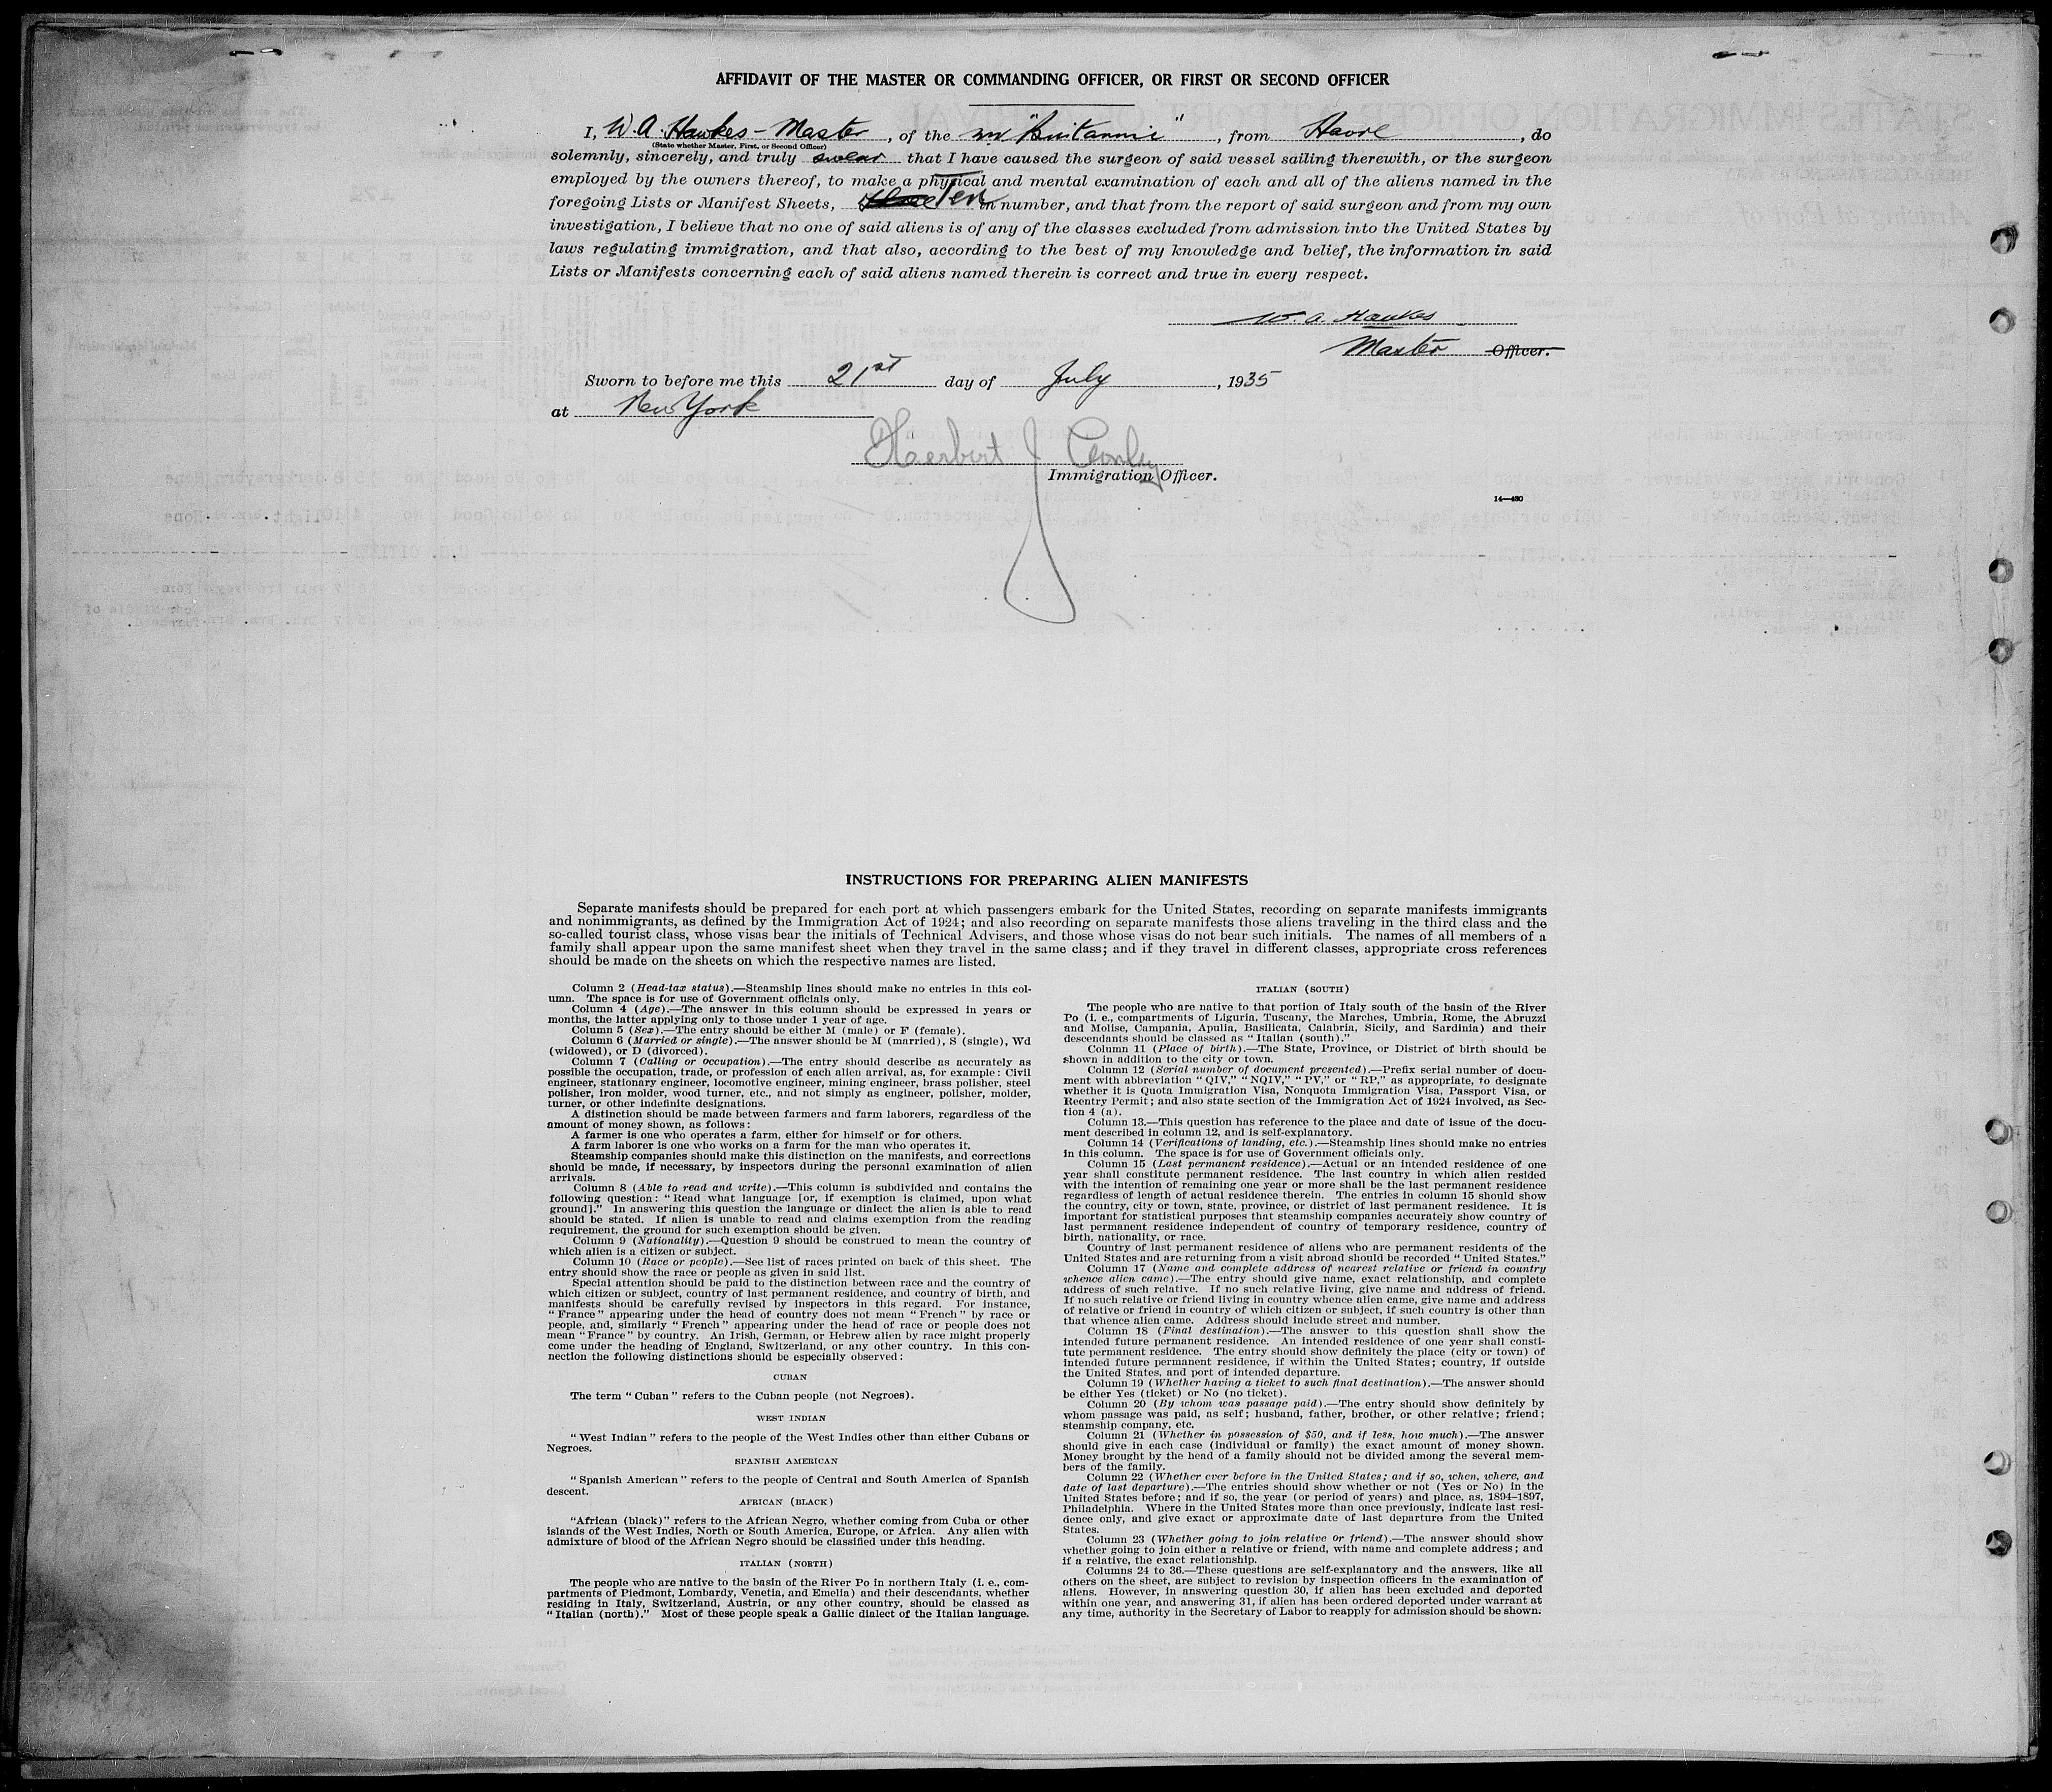 AFFIDAVIT OF THE MASTER OR COMMANDING OFFICER, OR FIRST OR SECOND OFFICER
I, W. A. Hawkes - Master, of the mv "Britannic", from Havre, do
(State whether Master, First, or Second Officer)
solemnly, sincerely, and truly swear that I have caused the surgeon of said vessel sailing therewith, or the surgeon
employed by the owners thereof, to make a physical and mental examination of each and all of the aliens named in the
foregoing Lists or Manifest Sheets, Ten in number, and that from the report of said surgeon and from my own
investigation, I believe that no one of said aliens is of any of the classes excluded from admission into the United States by
laws regulating immigration, and that also, according to the best of my knowledge and belief, the information in said
Lists or Manifests concerning each of said aliens named therein is correct and true in every respect.
W. A. Hawkes
Master Officer.
Sworn to before me this 21st day of July, 1935
at New York
Herbert J
Immigration Officer.
14—480
INSTRUCTIONS FOR PREPARING ALIEN MANIFESTS
Separate manifests should be prepared for each port at which passengers embark for the United States, recording on separate manifests immigrants
and nonimmigrants, as defined by the Immigration Act of 1924; and also recording on separate manifests those aliens traveling in the third class and the
so-called tourist class, whose visas bear the initials of Technical Advisers, and those whose visas do not bear such initials. The names of all members of a
family shall appear upon the same manifest sheet when they travel in the same class; and if they travel in different classes, appropriate cross references
should be made on the sheets on which the respective names are listed.
Column 2 (Head-tax status).—Steamship lines should make no entries in this col-
umn. The space is for use of Government officials only.
Column 4 (Age).—The answer in this column should be expressed in years or
months, the latter applying only to those under 1 year of age.
Column 5 (Sex).—The entry should be either M (male) or F (female).
Column 6 (Married or single).—The answer should be M (married), S (single), Wd
(widowed), or D (divorced).
Column 7 (Calling or occupation).—The entry should describe as accurately as
possible the occupation, trade, or profession of each alien arrival, as, for example: Civil
engineer, stationary engineer, locomotive engineer, mining engineer, brass polisher, steel
polisher, iron molder, wood turner, etc., and not simply as engineer, polisher, molder,
turner, or other indefinite designations.
A distinction should be made between farmers and farm laborers, regardless of the
amount of money shown, as follows:
A farmer is one who operates a farm, either for himself or for others.
A farm laborer is one who works on a farm for the man who operates it.
Steamship companies should make this distinction on the manifests, and corrections
should be made, if necessary, by inspectors during the personal examination of alien
arrivals.
Column 8 (Able to read and write).—This column is subdivided and contains the
following question: "Read what language [or, if exemption is claimed, upon what
ground]." In answering this question the language or dialect the alien is able to read
should be stated. If alien is unable to read and claims exemption from the reading
requirement, the ground for such exemption should be given.
Column 9 (Nationality).—Question 9 should be construed to mean the country of
which alien is a citizen or subject.
Column 10 (Race or people).—See list of races printed on back of this sheet. The
entry should show the race or people as given in said list.
Special attention should be paid to the distinction between race and the country of
which citizen or subject, country of last permanent residence, and country of birth, and
manifests should be carefully revised by inspectors in this regard. For instance,
"France" appearing under the head of country does not mean "French" by race or
people, and, similarly "French" appearing under the head of race or people does not
mean "France" by country. An Irish, German, or Hebrew alien by race might properly
come under the heading of England, Switzerland, or any other country. In this con-
nection the following distinctions should be especially observed:
CUBAN
The term "Cuban" refers to the Cuban people (not Negroes).
WEST INDIAN
"West Indian" refers to the people of the West Indies other than either Cubans or
Negroes.
SPANISH AMERICAN
"Spanish American" refers to the people of Central and South America of Spanish
descent.
AFRICAN (BLACK)
"African (black)" refers to the African Negro, whether coming from Cuba or other
islands of the West Indies, North or South America, Europe, or Africa. Any alien with
admixture of blood of the African Negro should be classified under this heading.
ITALIAN (NORTH)
The people who are native to the basin of the River Po in northern Italy (i. e., com-
partments of Piedmont, Lombardy, Venetia, and Emelia) and their descendants, whether
residing in Italy, Switzerland, Austria, or any other country, should be classed as
"Italian (north)." Most of these people speak a Gallic dialect of the Italian language.
ITALIAN (SOUTH)
The people who are native to that portion of Italy south of the basin of the River
Po (i. e., compartments of Liguria, Tuscany, the Marches, Umbria, Rome, the Abruzzi
and Molise, Campania, Apulia, Basilicata, Calabria, Sicily, and Sardinia) and their
descendants should be classed as "Italian (south)."
Column 11 (Place of birth).—The State, Province, or District of birth should be
shown in addition to the city or town.
Column 12 (Serial number of document presented).—Prefix serial number of docu-
ment with abbreviation "QIV," "NQIV," "PV," or "RP," as appropriate, to designate
whether it is Quota Immigration Visa, Nonquota Immigration Visa, Passport Visa, or
Reentry Permit; and also state section of the Immigration Act of 1924 involved, as Sec-
tion 4 (a).
Column 13.—This question has reference to the place and date of issue of the docu-
ment described in column 12, and is self-explanatory.
Column 14 (Verifications of landing, etc.).—Steamship lines should make no entries
in this column. The space is for use of Government officials only.
Column 15 (Last permanent residence).—Actual or an intended residence of one
year shall constitute permanent residence. The last country in which alien resided
with the intention of remaining one year or more shall be the last permanent residence
regardless of length of actual residence therein. The entries in column 15 should show
the country, city or town, state, province, or district of last permanent residence. It is
important for statistical purposes that steamship companies accurately show country of
last permanent residence independent of country of temporary residence, country of
birth, nationality, or race.
Country of last permanent residence of aliens who are permanent residents of the
United States and are returning from a visit abroad should be recorded "United States."
Column 17 (Name and complete address of nearest relative or friend in country
whence alien came).—The entry should give name, exact relationship, and complete
address of such relative. If no such relative living, give name and address of friend.
If no such relative or friend living in country whence alien came, give name and address
of relative or friend in country of which citizen or subject, if such country is other than
that whence alien came. Address should include street and number.
Column 18 (Final destination).—The answer to this question shall show the
intended future permanent residence. An intended residence of one year shall consti-
tute permanent residence. The entry should show definitely the place (city or town) of
intended future permanent residence, if within the United States; country, if outside
the United States, and port of intended departure.
Column 19 (Whether having a ticket to such final destination).—The answer should
be either Yes (ticket) or No (no ticket).
Column 20 (By whom was passage paid).—The entry should show definitely by
whom passage was paid, as self; husband, father, brother, or other relative; friend;
steamship company, etc.
Column 21 (Whether in possession of $50, and if less, how much).—The answer
should give in each case (individual or family) the exact amount of money shown.
Money brought by the head of a family should not be divided among the several mem-
bers of the family.
Column 22 (Whether ever before in the United States; and if so, when, where, and
date of last departure).—The entries should show whether or not (Yes or No) in the
United States before; and if so, the year (or period of years) and place, as, 1894–1897,
Philadelphia. Where in the United States more than once previously, indicate last resi-
dence only, and give exact or approximate date of last departure from the United
States.
Column 23 (Whether going to join relative or friend).—The answer should show
whether going to join either a relative or friend, with name and complete address; and
if a relative, the exact relationship.
Columns 24 to 36.—These questions are self-explanatory and the answers, like all
others on the sheet, are subject to revision by inspection officers in the examination of
aliens. However, in answering question 30, if alien has been excluded and deported
within one year, and answering 31, if alien has been ordered deported under warrant at
any time, authority in the Secretary of Labor to reapply for admission should be shown.